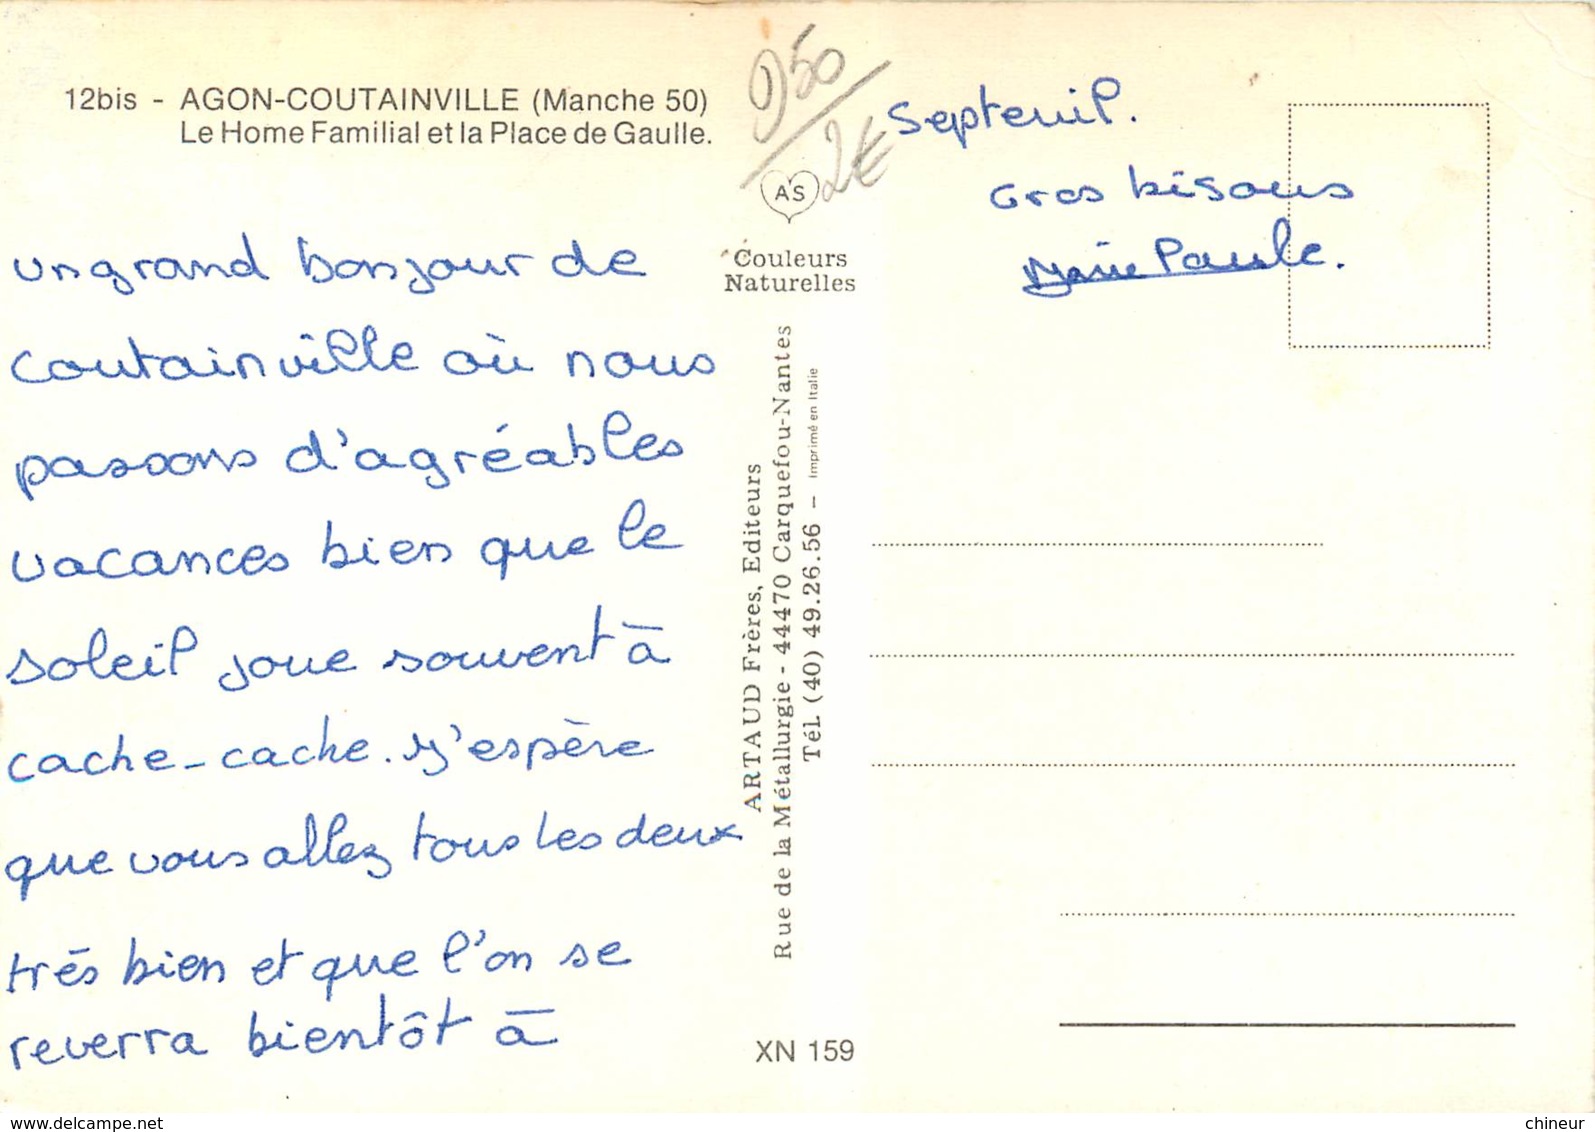 12bis - AGON-COUTAINVILLE (Manche 50)
Le Home Familial et la Place de Gaulle.
un grand bonjour de
coutainville où nous
passons d'agréables
vacances bien que le
soleil joue souvent à
cache-cache. J'espère
que vous allez tous les deux
très bien et que l'on se
reverra bientôt à
Septeuil.
Gros bisous
Marie Paule.
950
2€
AS
Couleurs
Naturelles
ARTAUD Frères, Editeurs
Rue de la Métallurgie - 44470 Carquefou-Nantes
Tél. (40) 49.26.56 – Imprimé en Italie
XN 159
www.delcampe.net
chineur